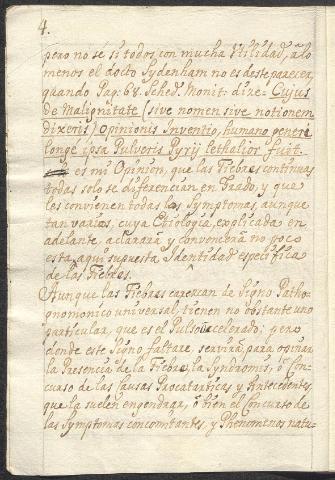 4.
pero no sé si todos con mucha Utilidad, a lo
menos el docto Sydenham no es de este parecer,
quando Pag: 68. Sched. Monit. dize = Cujus
de Malignitate (sive nomen sive notionem
dixeris) Opinionis Inventio, humano generi
longè ipsa Pulveris Pyrij lethalior fuit.
es mi Opinion, que las Fiebres continuas
todas solo se diferencian en Grado, y que
les convienen todas los Symptomas, aunque
tan varios, cuya Etiologia, explicada en
adelante, aclarará y convencerá no poco
esta aqui supuesta Identidad especifica
de las Fiebres.
Aunque las Fiebres carezcan de Signo Patho-
gnomonico universal, tienen no obstante uno
particular, que es el Pulso acelerado; pero
donde este Signo faltare, servirá para opinar
la Presencia de la Fiebre, la Syndromis, ó Con-
curso de las Causas Procatarticas y Antecedentes,
que la suelen engendrar, ó bien el Concurso de
los Symptomas concomitantes, y Phenomenos natu-